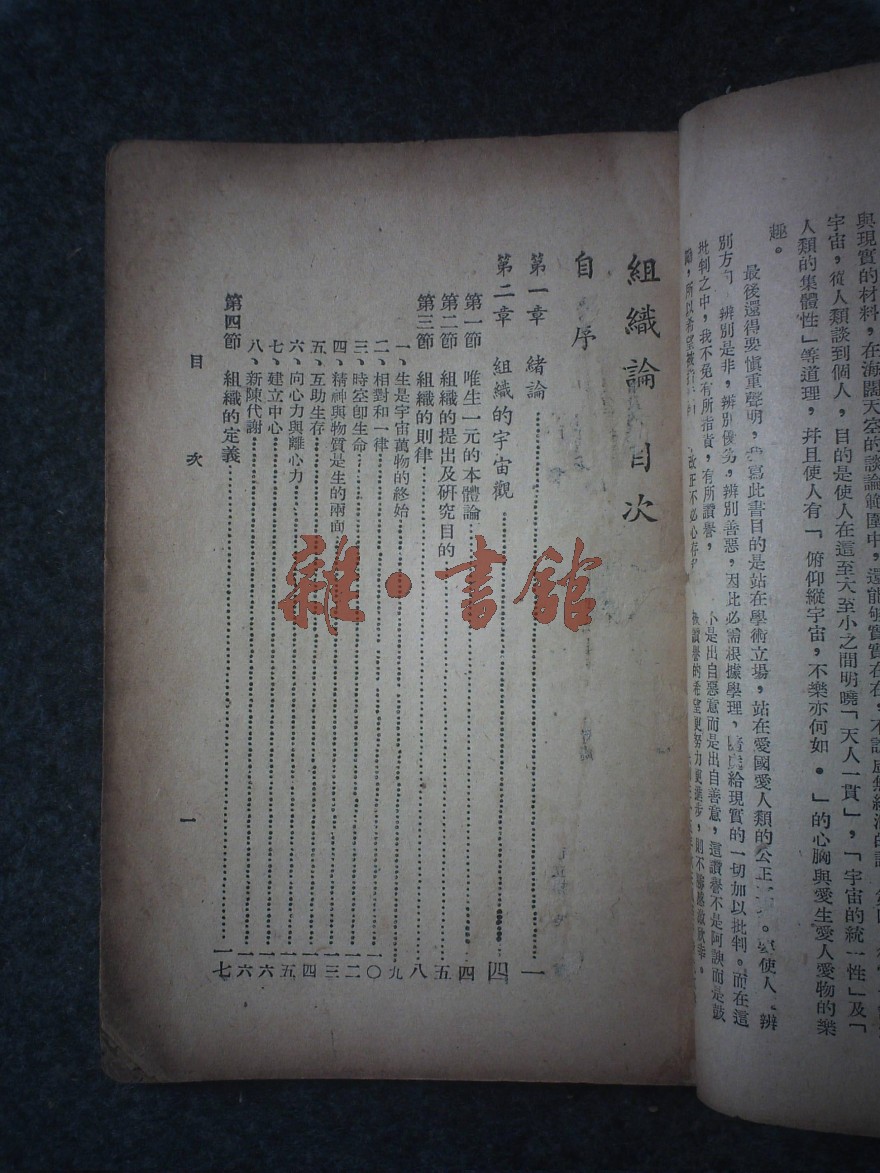 與現實的材料，在海闊天空的談論範圍中，還能
宇宙，從人類談到個人，目的是使人在這至大至小之間明曉「天人一貫」，「宇宙的統一性」及「
人類的集體性」等道理，并且使人有「俯仰縱宇宙，不樂亦何如。」的心胸與愛生愛人愛物的樂
趣。
最後還得要慎重聲明，我寫此書目的是站在學術立場，站在愛國愛人類的公正
使人，辨
別方 辨別是非，辨別優劣，辨別善惡，因此必需根據學理，
給現實的一切加以批判。而在這
批判之中，我不免有所指責，有所讚譽，
不是出自惡意而是出自善意，這讚譽不是阿諛而是鼓
所以希望被
改正不必心存
被讚譽的希望更努力更進步，則不勝感激欣幸。
組織論目次
自序
第一章 緒論 一
第二章 組織的宇宙觀 四
第一節 唯生一元的本體論 四
第二節 組織的提出及研究目的 五
第三節 組織的則律 八
一、生是宇宙萬物的終始 九
二、相對和一律 一〇
三、時空卽生命 一二
四、精神與物質是生的兩面 一三
五、互助生存 一四
六、向心力與離心力 一五
七、建立中心 一六
八、新陳代謝 一六
第四節 組織的定義 一七
目次
一
雜·書館